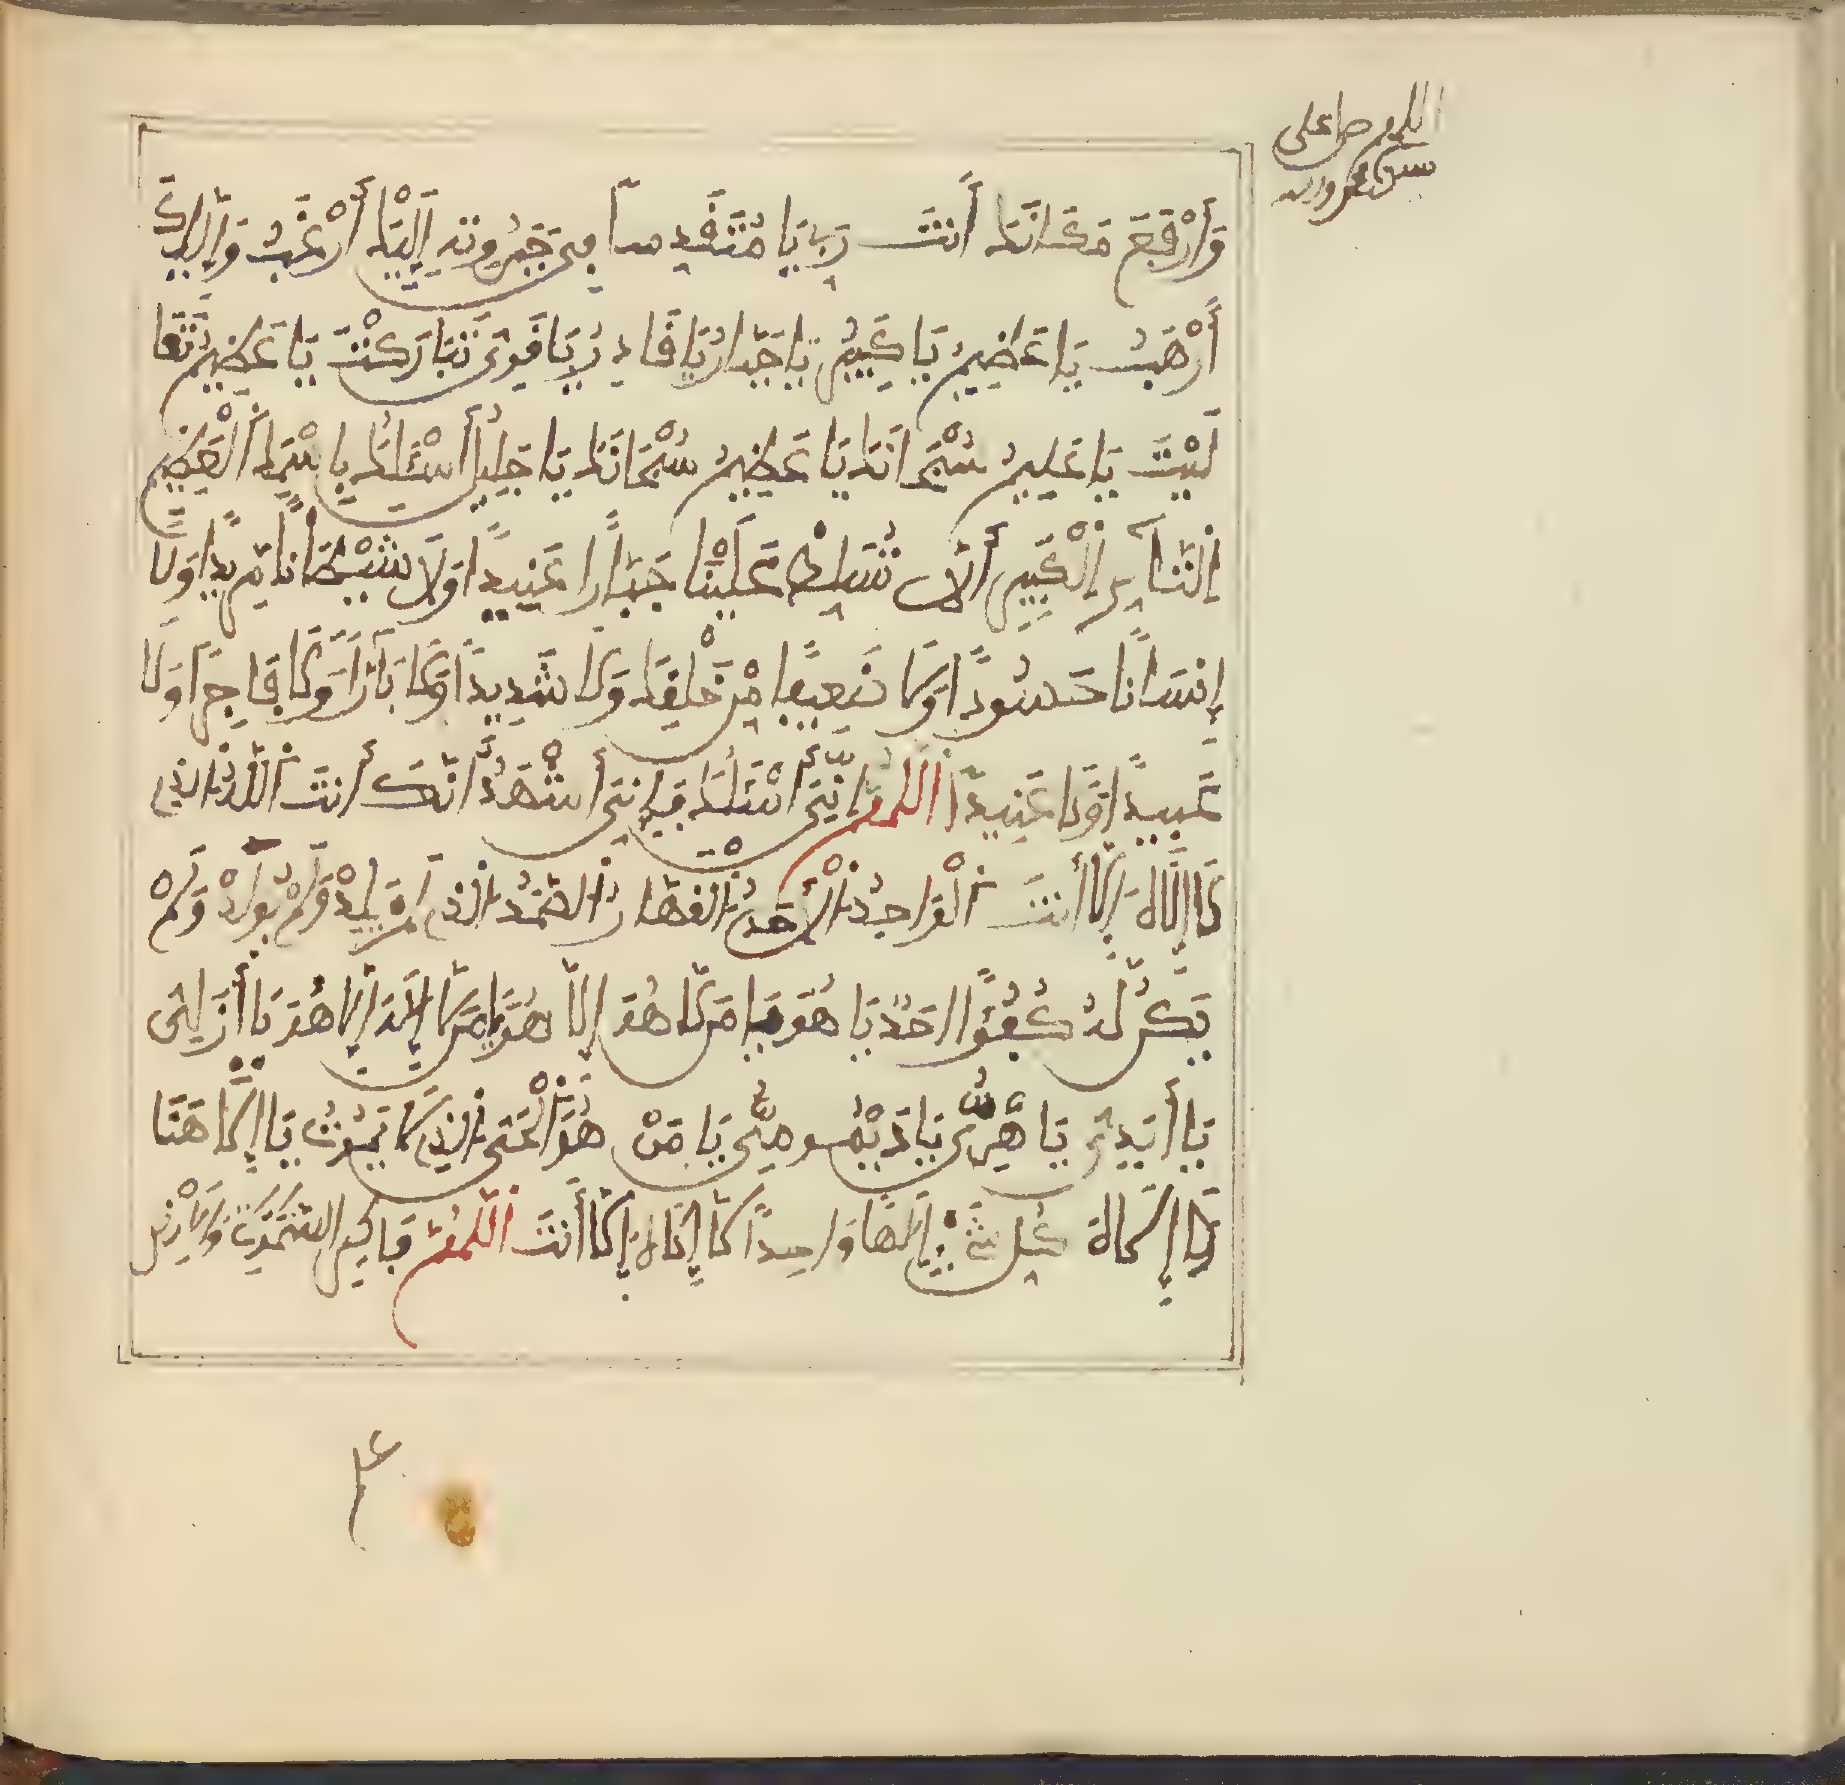 اللهم صل على
سيدنا محمد وءاله
وَأَرْفَعَ مَكَانَكَ أَنتَ رَبِّ يَا مُتَقَدِّساً فِي جَبَرُوتِهِ إِلَيْكَ أَرْغَبُ وَإِيَّاكَ
أَرْهَبُ يَا عَظِيمُ يَا كَبِيرُ يَا جَبَّارُ يَا قَادِرُ يَا قَوِيُّ تَبَارَكْتَ يَا عَظِيمُ تَعَا
لَيْتَ يَا عَلِيمُ سُبْحَانَكَ يَا عَظِيمُ سُبْحَانَكَ يَا جَلِيلُ أَسْئَلُكَ بِاسْمِكَ الْعَظِيمِ
التَّآمِّ الْكَبِيرِ أَن لَّا تُسَلِّطَ عَلَيْنَا جَبَّاراً عَنِيداً وَلَا شَيْطَاناً مَّرِيداً وَلَا
إِنسَاناً حَسُوداً وَلَا ضَعِيفاً مِّنْ خَلْقِكَ وَلَا شَدِيداً وَلَا بَآرّاً وَلَا فَاجِراً وَلَا
عَبِيداً وَلَا عَنِيداً اللَّهُمَّ إِنِّي أَسْئَلُكَ فَإِنِّي أَشْهَدُ أَنَّكَ أَنتَ اللَّهُ الَّذِي
لَا إِلَهَ إِلَّا أَنتَ الْوَاحِدُ الْأَحَدُ الْقَهَّارُ الصَّمَدُ الَّذِي لَمْ يَلِدْ وَلَمْ يُولَدْ وَلَمْ
يَكُن لَّهُ كُفُؤاً أَحَدٌ يَا هُوَ يَا مَن لَّا هُوَ إِلَّا هُوَ يَا مَن لَّا إِلَهَ إِلَّا هُوَ يَا أَزَلِيُّ
يَا أَبَدِيُّ يَا دَهْرِيُّ يَا دَيْمُومِيُّ يَا مَنْ هُوَ الْحَيُّ الَّذِي لَا يَمُوتُ يَا إِلَاهَنَا
وَإِلَاهَ كُلِّ شَيْءٍ إِلَهاً وَاحِداً لَا إِلَاهَ إِلَّا أَنتَ اللَّهُمَّ فَاطِرَ السَّمَوَاتِ وَالْأَرْضِ